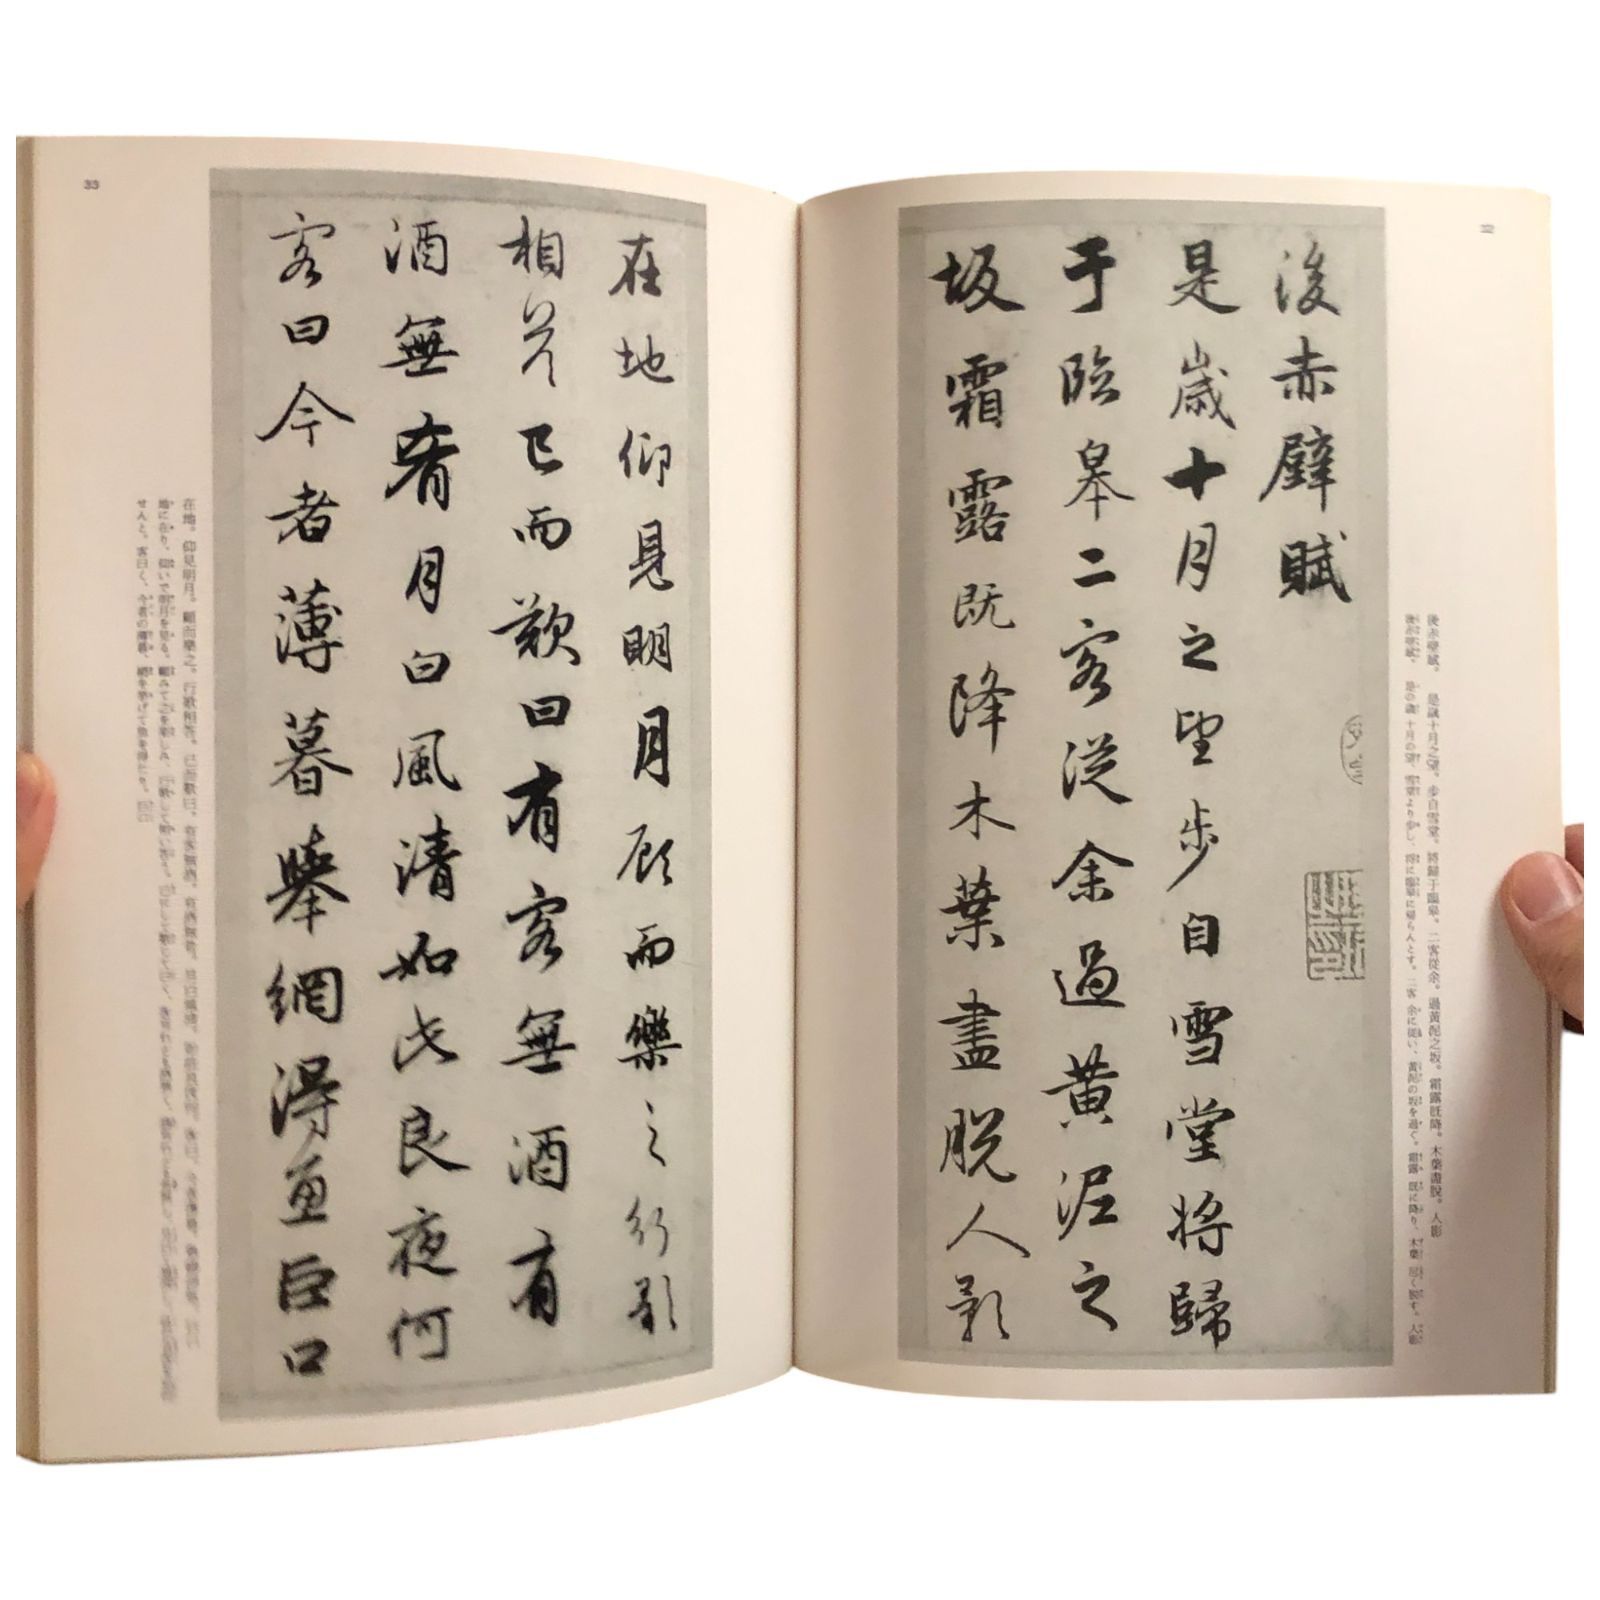 32
後赤壁賦
是歲十月之望步自雪堂將歸
于臨皋二客從余過黃泥之
坂霜露既降木葉盡脫人影
後赤壁賦。 是歲十月之望。步自雪堂。將歸于臨皋。二客從余。過黃泥之坂。霜露既降。木葉盡脫。人影
後赤壁賦。 是の歲十月の望、雪堂より歩し、将に臨皋に帰らんとす。二客 余に従い、黄泥の坂を過ぐ。霜露 既に降り、木葉 尽く脱す。人影
33
在地仰見明月顧而樂之行歌
相答已而歎曰有客無酒有
酒無肴月白風清如此良夜何
客曰今者薄暮舉網得魚巨口
在地。仰見明月。顧而樂之。行歌相答。已而歎曰。有客無酒。有酒無肴。月白風清。如此良夜何。客曰。今者薄暮。舉網得魚。巨口
地に在り、仰いで明月を見る。顧みて之を楽しみ、行歌して相い答う。已にして歎じて曰く、客有れども酒無く、酒有れども肴無し。月白く風清し、
せんと。客曰く、今者の薄暮、網を挙げて魚を得たり。巨口